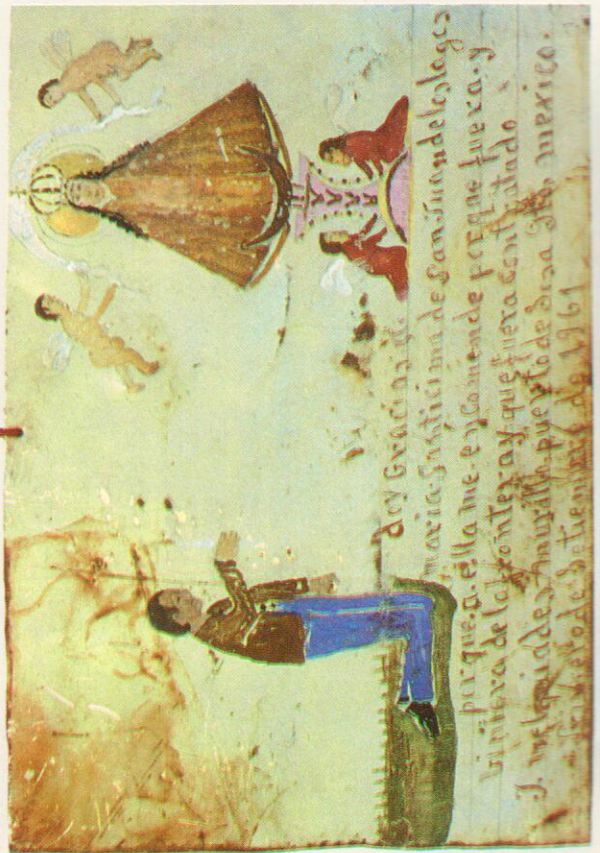 doy Gracias
maria Santicima de San Juan de los lagos
porque, a ella me encomende porque fuera y
biniera de la frontera y que fuera contratado
J. melquiades murillo puerto de gto. mexico.
de 1961